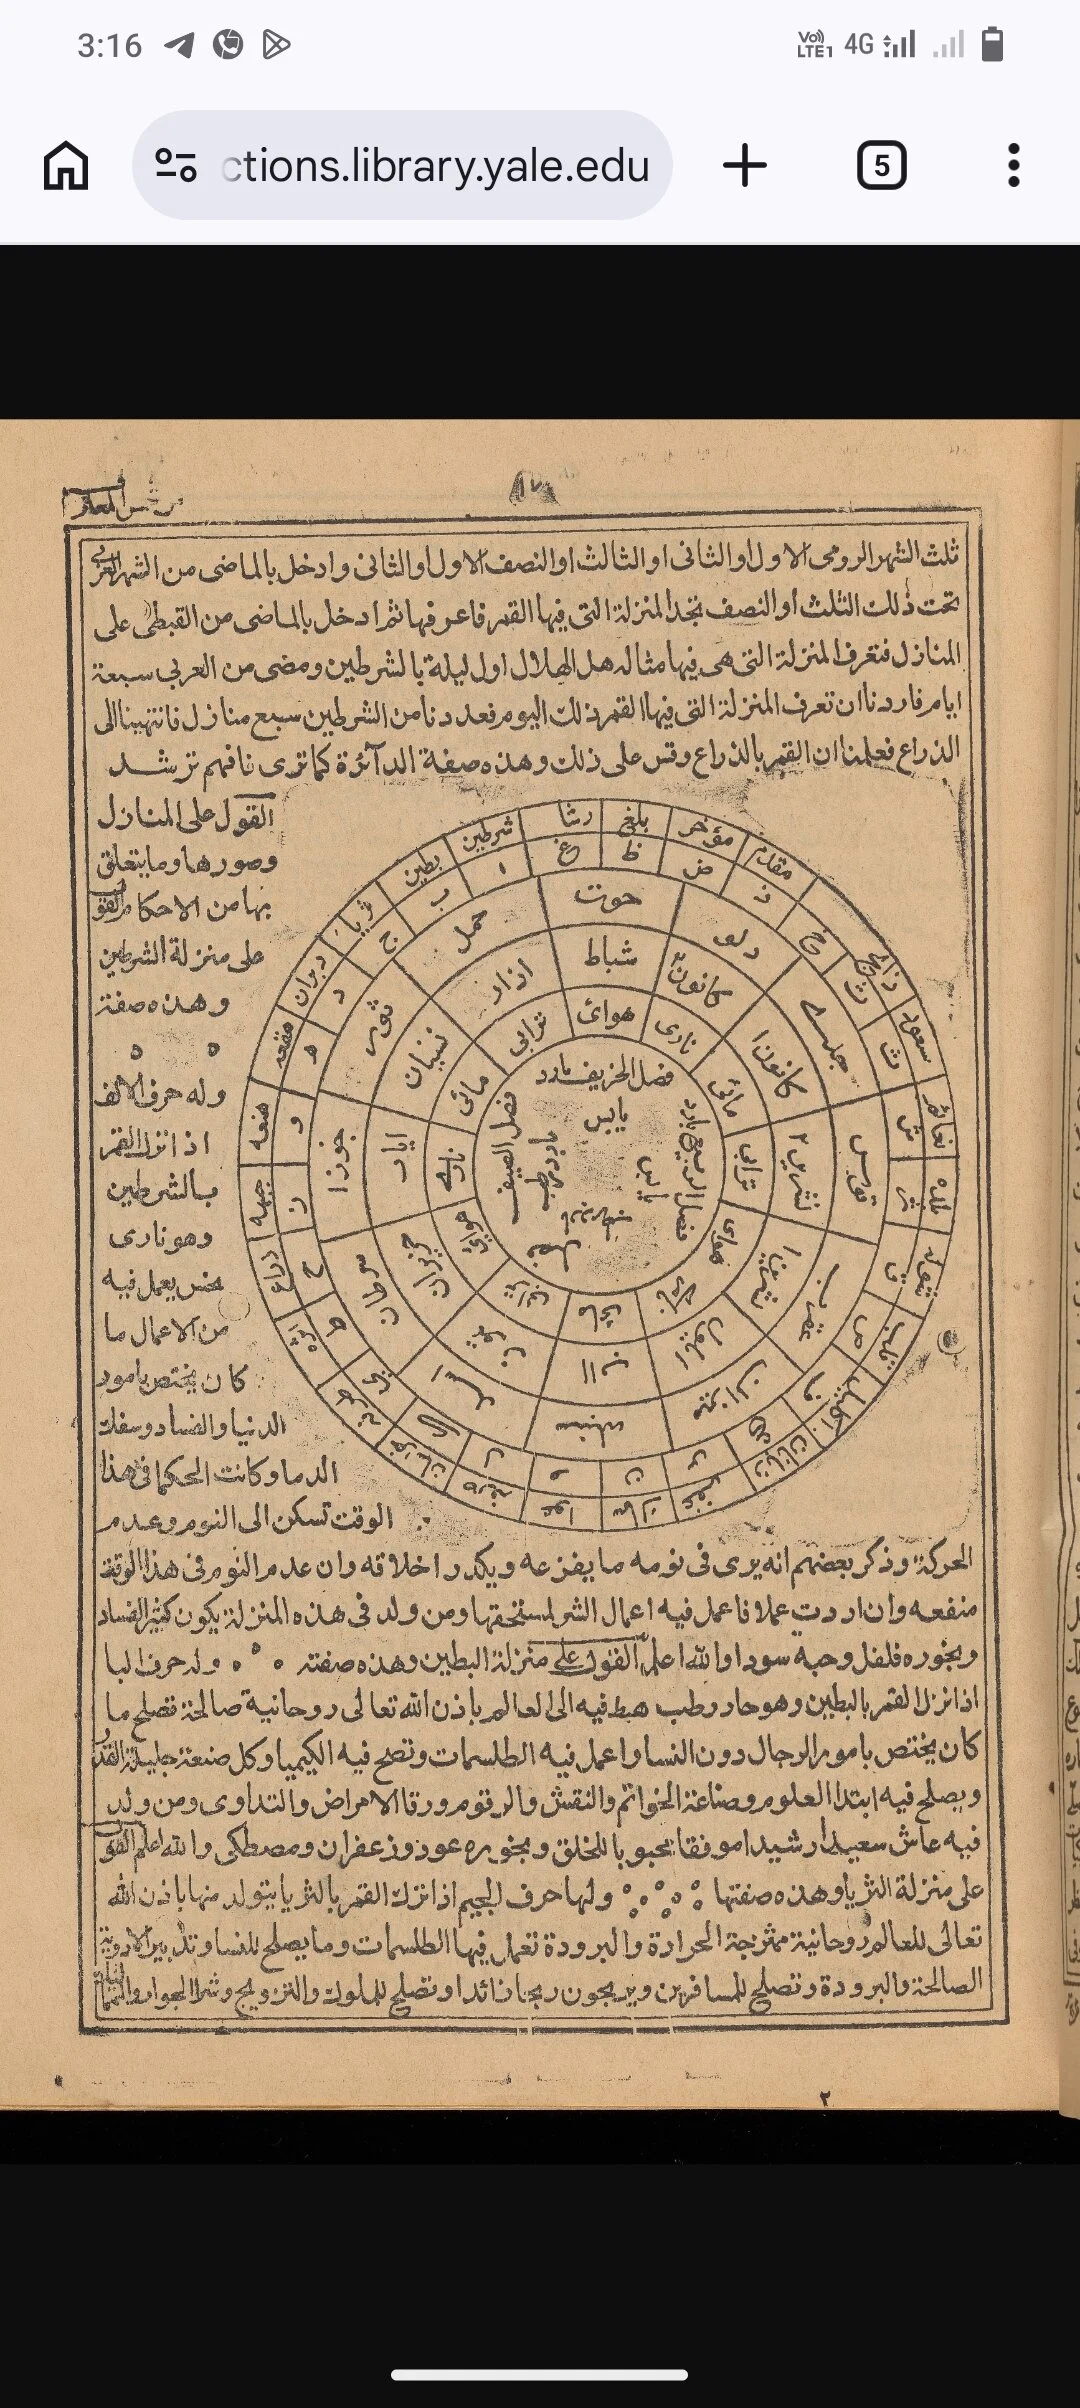 3:16
VoLTE1 4G
ctions.library.yale.edu
5
١٧
شمس المعارف
ثلث الشهر الرومى الاول او الثانى او الثالث او النصف الاول او الثانى وادخل بالماضى من الشهر العربى
تحت ذلك الثلث او النصف تجد المنزلة التى فيها القمر فاعرفها ثم ادخل بالماضى من القبطى على
المنازل فتعرف المنزلة التى هى فيها مثاله هل الهلال اول ليلة بالشرطين ومضى من العربى سبعة
ايام فاردنا ان تعرف المنزلة التى فيها القمر ذلك اليوم فعددنا من الشرطين سبع منازل فانتهينا الى
الذراع فعلمنا ان القمر بالذراع وقس على ذلك وهذه صفة الدآئرة كما ترى فافهم ترشد
القول على المنازل
وصورها وما يتعلق
بها من الاحكام القول
على منزلة الشرطين
وهذه صفتة
وله حرف الالف
اذا نزل القمر
بالشرطين
وهو نارى
نحس يعمل فيه
من الاعمال ما
كان يختص بامور
الدنيا والفساد وسفك
الدما وكانت الحكما فى هذا
الوقت تسكن الى النوم وعدم
رشا بلغ مؤخر مقدم ذابح سعود نعائم بلده شوله قلب اكليل زبانان غفر سماك عوا صرفه خرتان جبهه ذراع جبهه هنعه هقعه دبران ثريا بطين شرطين
غ ظ ض ذ خ ث ت ش ر ق ص ف ع س ن م ل ك ى ط ح ز و ه د ج ب ا
حوت دلو جدى قوس عقرب ميزان سنبله اسد سرطان جوزا ثور حمل
شباط كانون٢ كانون١ تشرين٢ تشرين١ ايلول اب تموز حزيران ايار نيسان اذار
هوائ نارى مائى ترابى هواى نارى مائى ترابى هوائى نارى مائى ترابى
فصل الخريف بارد
يابس
فصل الربيع بارد
يابس
فصل
فصل الصيف
الحركة وذكر بعضهم انه يرى فى نومه ما يفزعه ويكدر اخلاقه وان عدم النوم فى هذا الوقت
منفعه وان اردت عملا فاعمل فيه اعمال الشر لمستحقها ومن ولد فى هذه المنزلة يكون كثير الفساد
وبخوره فلفل وحبه سودا والله اعلم القول على منزلة البطين وهذه صفته وله حرف البا
اذا نزل القمر بالبطين وهو حار رطب هبط فيه الى العالم باذن الله تعالى روحانية صالحة تصلح ما
كان يختص بامور الرجال دون النسا واعمل فيه الطلسمات وتصح فيه الكيميا وكل صنعة جليلة القدر
ويصلح فيه ابتدا العلوم وصناعة الخواتم والنقش والرقوم ورقا الامراض والتداوى ومن ولد
فيه عاش سعيدا رشيدا موفقا محبوبا للخلق وبخوره عود وزعفران ومصطكى والله اعلم القول
على منزلة الثريا وهذه صفتها ولها حرف الجيم اذا نزلت القمر بالثريا يتولد منها باذن الله
تعالى للعالم روحانية ممتزجة الحرارة والبرودة تعمل فيها الطلسمات وما يصلح للنسا وتدبير الادوية
الصالحة والبرودة وتصلح للمسافرين ويربحون ربحا زائدا وتصلح للملوك والتزويج وشرا الجوار والمماليك
٢